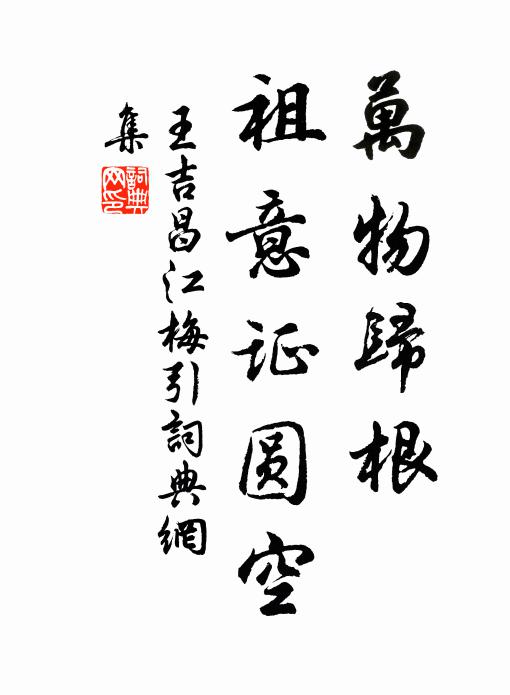 萬物歸根
祖意证圆空
王吉昌江梅引詞典網
集
詞典
网印